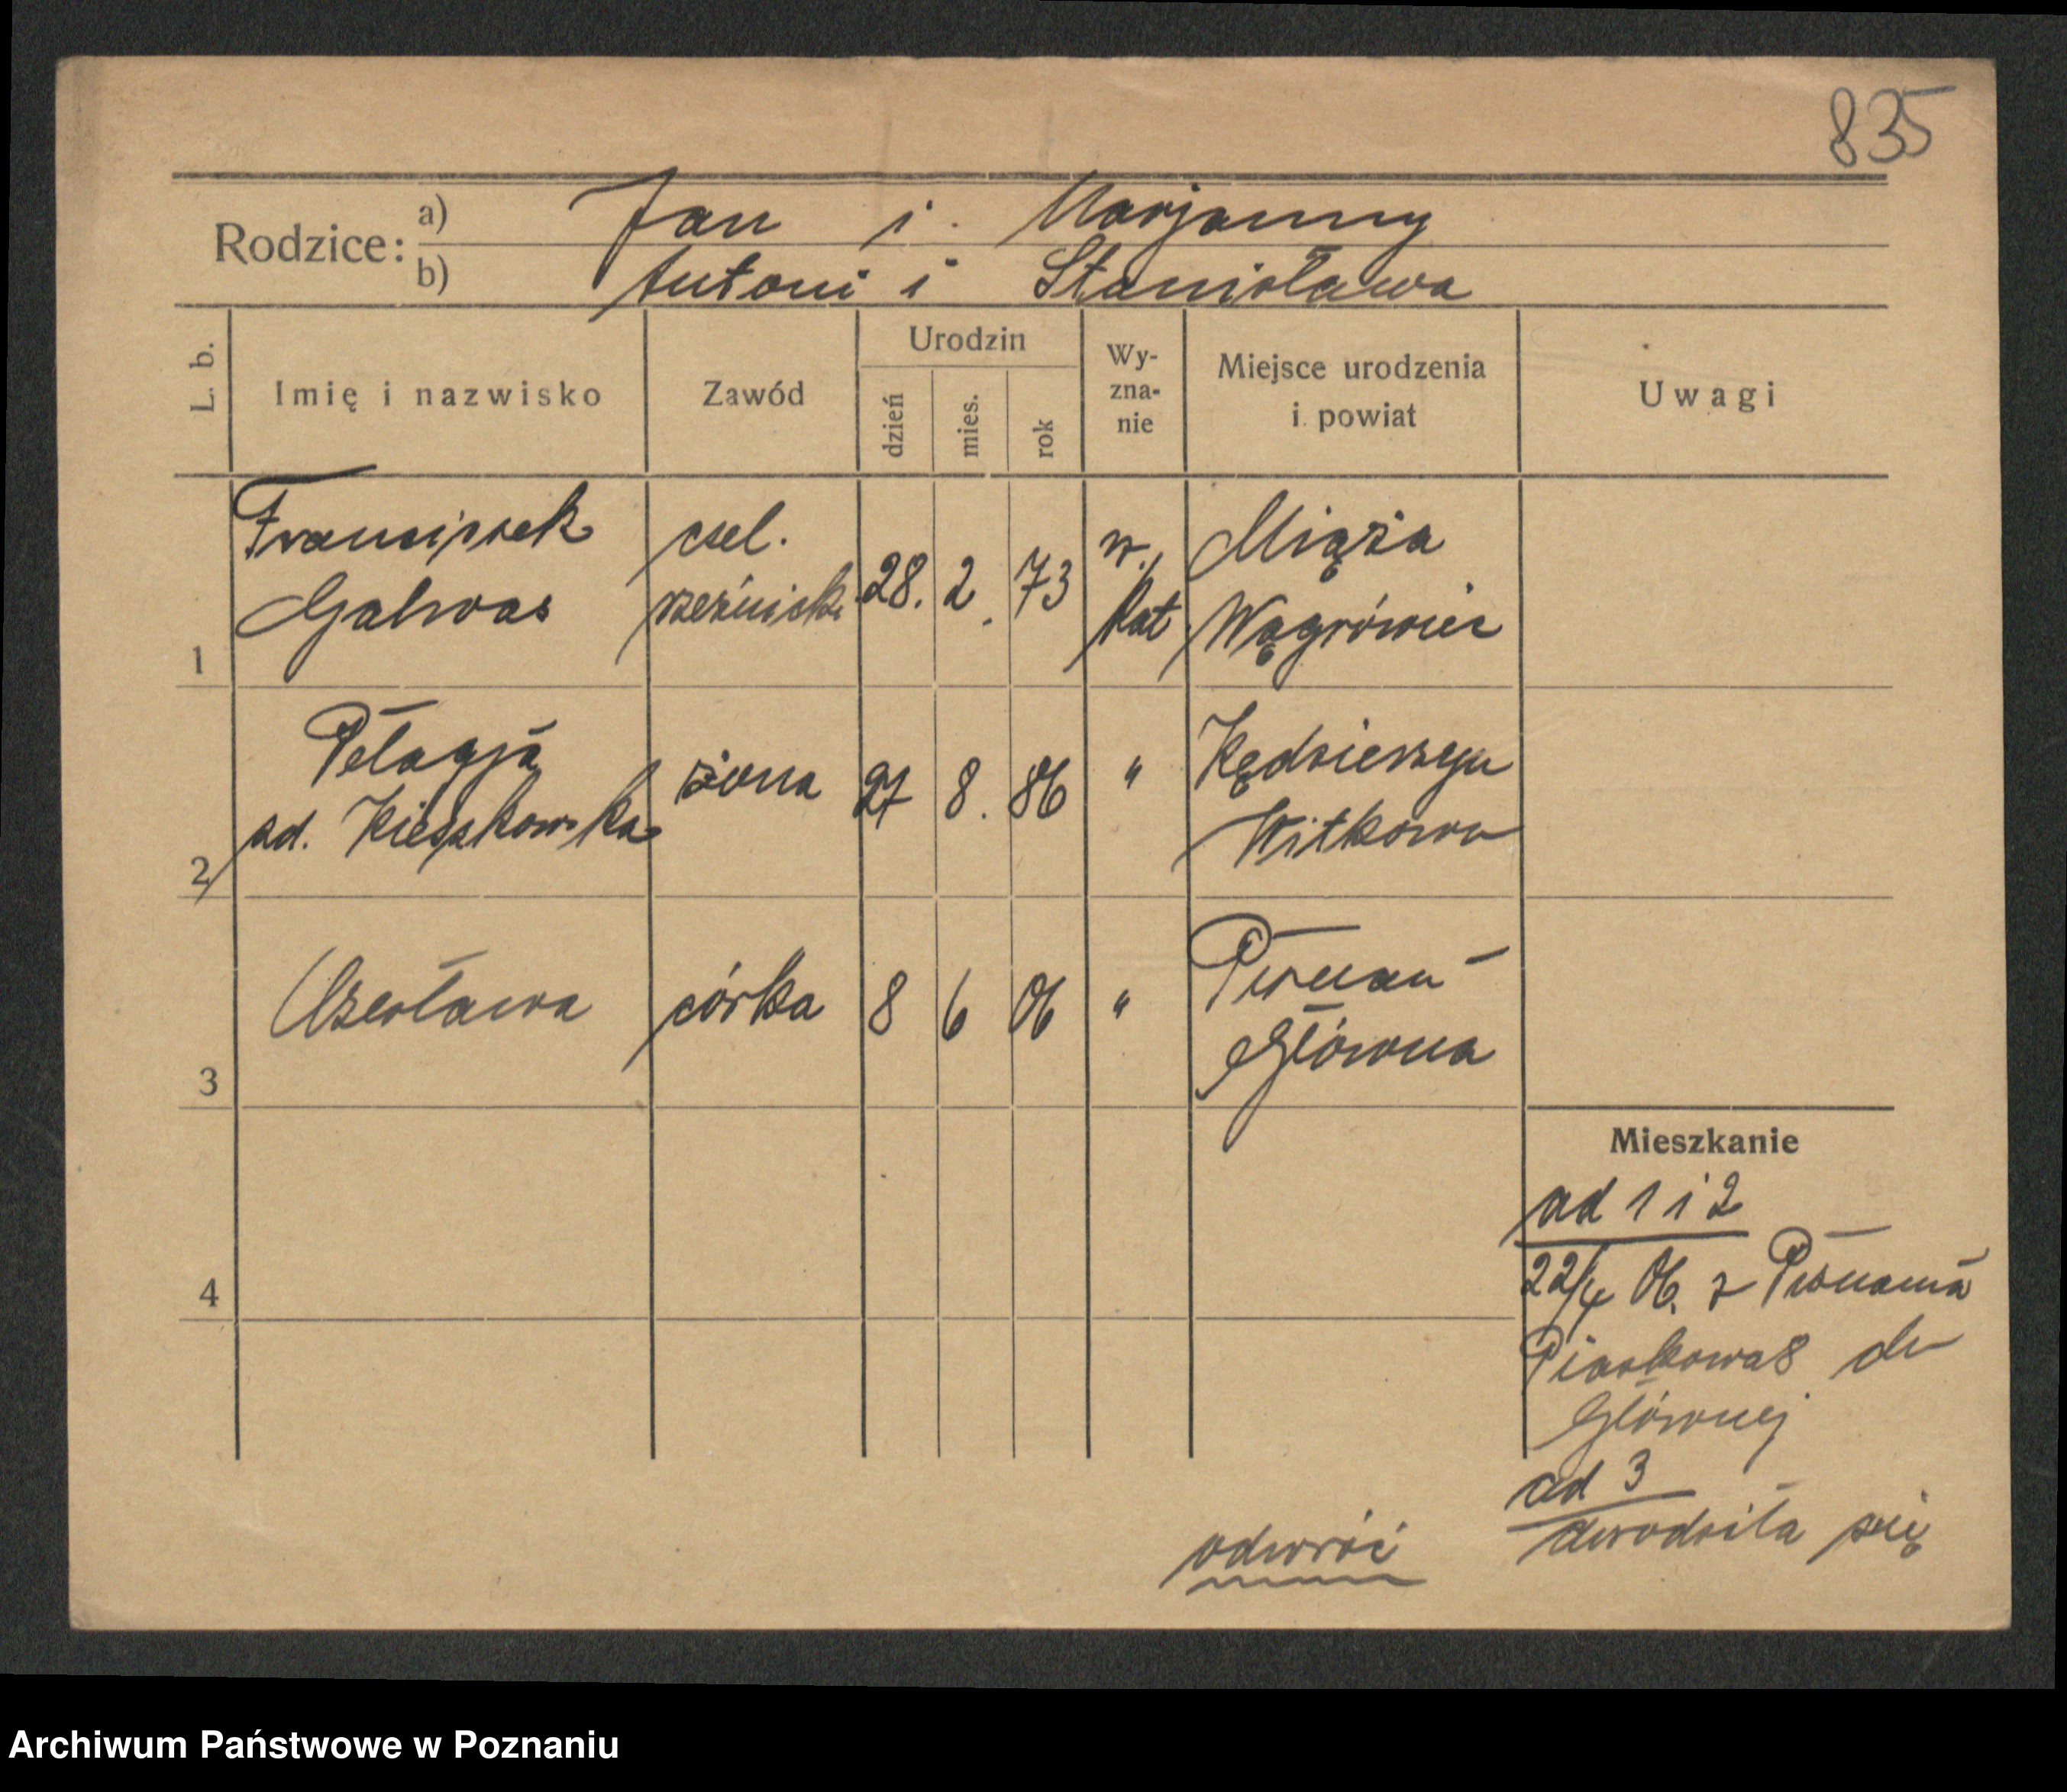 835
Rodzice: a) Jan i Marjanny
b) Antoni i Stanisława
L. b.
Imię i nazwisko
Zawód
Urodzin
dzień
mies.
rok
Wy-
zna-
nie
Miejsce urodzenia
i powiat
Uwagi
1
Franciszek
Galwas
czel.
rzeźnicki
28. 2. 73
rz.
kat
Miąża
Wągrówiec
2
Pelagja
zd. Kieszkowska
żona
27 8. 86
"
Witkowo
3
Czesława
córka
8 6 06
"
Poznań
Główna
4
Mieszkanie
ad 1 i 2
22/4 06. z Poznania
Piaskowa 8 do
Głównej
ad 3
urodziła się
odwróć
Archiwum Państwowe w Poznaniu